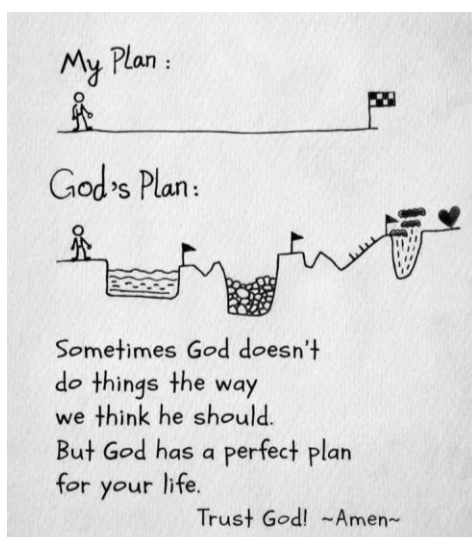 My Plan :
God's Plan:
Sometimes God doesn't
do things the way
we think he should.
But God has a perfect plan
for your life.
Trust God! ~Amen~